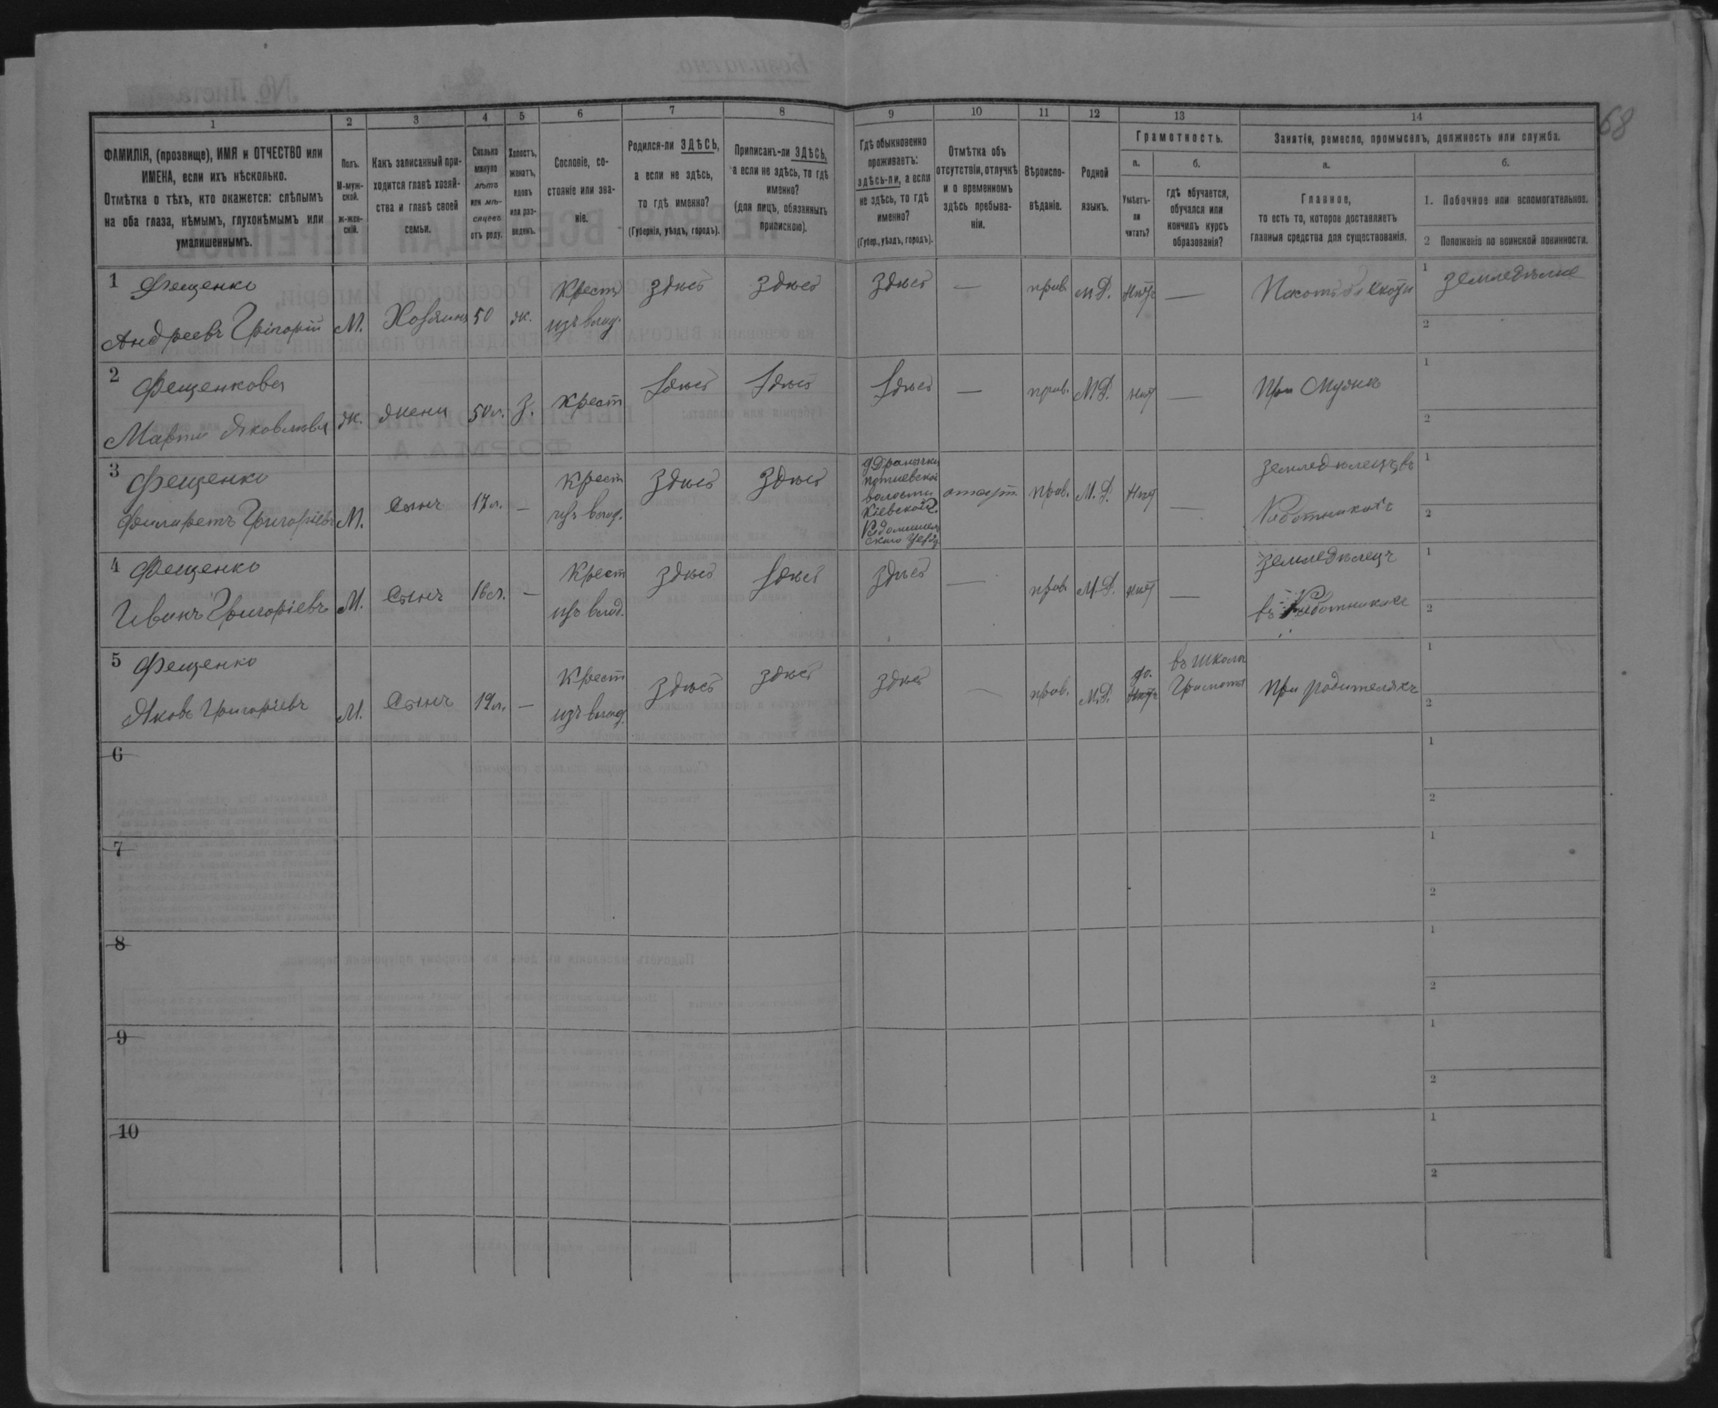 68
1 2 3 4 5 6 7 8 9 10 11 12 13 14
ФАМИЛІЯ, (прозвище), ИМЯ и ОТЧЕСТВО или
ИМЕНА, если ихъ нѣсколько.
Отмѣтка о тѣхъ, кто окажется: слѣпымъ
на оба глаза, нѣмымъ, глухонѣмымъ или
умалишеннымъ.
Полъ.
М-муж-
ской.
ж-жен-
скій.
Какъ записанный при-
ходится главѣ хозяй-
ства и главѣ своей
семьи.
Сколько
минуло
лѣтъ
или мѣ-
сяцевъ
отъ роду.
Холостъ,
женатъ,
вдовъ
или раз-
веденъ.
Сословіе, со-
стояніе или зва-
ніе.
Родился-ли ЗДѢСЬ,
а если не здѣсь,
то гдѣ именно?
(Губернія, уѣздъ, городъ).
Приписанъ-ли ЗДѢСЬ,
а если не здѣсь, то гдѣ
именно?
(для лицъ, обязанныхъ
припискою).
Гдѣ обыкновенно
проживаетъ:
здѣсь-ли, а если
не здѣсь, то гдѣ
именно?
(Губер., уѣздъ, городъ).
Отмѣтка объ
отсутствіи, отлучкѣ
и о временномъ
здѣсь пребыва-
ніи.
Вѣроиспо-
вѣданіе.
Родной
языкъ.
Грамотность.
а.
Умѣетъ-
ли
читать?
б.
гдѣ обучается,
обучался или
кончилъ курсъ
образованія?
Занятія, ремесло, промыселъ, должность или служба.
а.
Главное,
то есть то, которое доставляетъ
главныя средства для существованія.
б.
1. Побочное или вспомогательное.
2 Положеніе по воинской повинности.
1 Фещенко
Андреевъ Григорій М. Хозяинъ 50 ж. Крест. изъ влад. здѣсь здѣсь здѣсь — прав. М.Р. нѣтъ — 1 земледѣліе
2
2 Фещенкова
Яковлева ж. жена 50 л. З. крест здѣсь здѣсь здѣсь — прав. М.Р. нѣт При мужѣ 1
2
3 Фещенко
Григоріевъ М. Сынъ 17 л. — Крест изъ влад. здѣсь здѣсь
волости
Кіевской Г.
прав. М.Р. нѣт — Земледѣлецъ въ
Работникахъ 1
2
4 Фещенко
Иванъ Григоріевъ М. Сынъ 16 л. — Крест изъ влад. здѣсь здѣсь здѣсь — прав М.Р. нѣт — Земледѣлецъ
въ Работникахъ 1
2
5 Фещенко
Яковъ Григоріевъ М. Сынъ — Крест изъ влад. здѣсь здѣсь здѣсь — прав. М.Р. да въ школѣ
Грамоты При родителяхъ 1
2
6 1
2
7 1
2
8 1
2
9 1
2
10 1
2